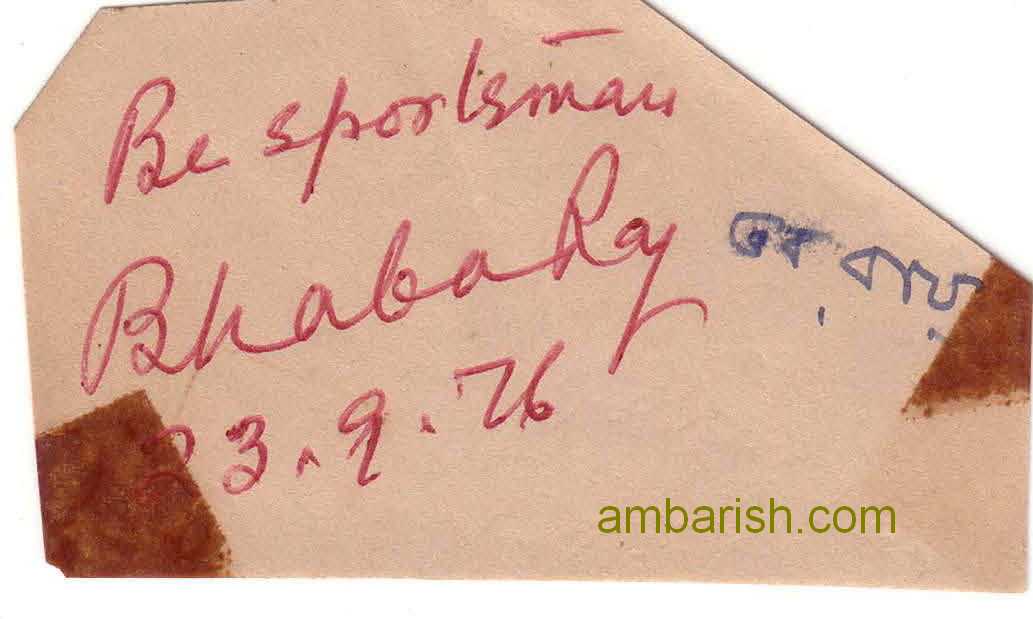 Be sportsman
Bhaba Ray
ভব রায়
23.9.76
ambarish.com